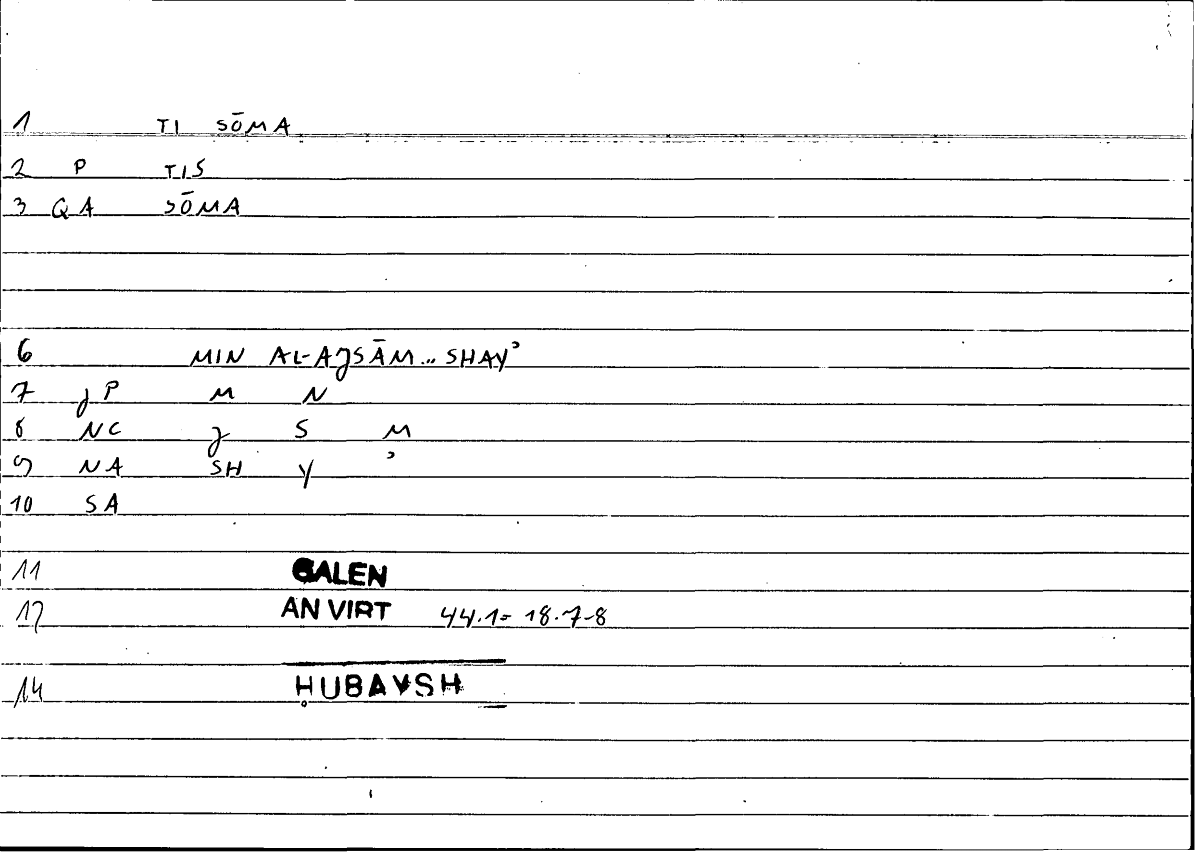 1 TI SŌMA
2 P TIS
3 QA SŌMA
6 MIN AL-AJSĀM... SHAYʾ
7 JP M N
8 NC J S M
9 NA SH Y ʾ
10 SA
11 GALEN
12 AN VIRT 44.1= 18.7-8
14 ḤUBAYSH